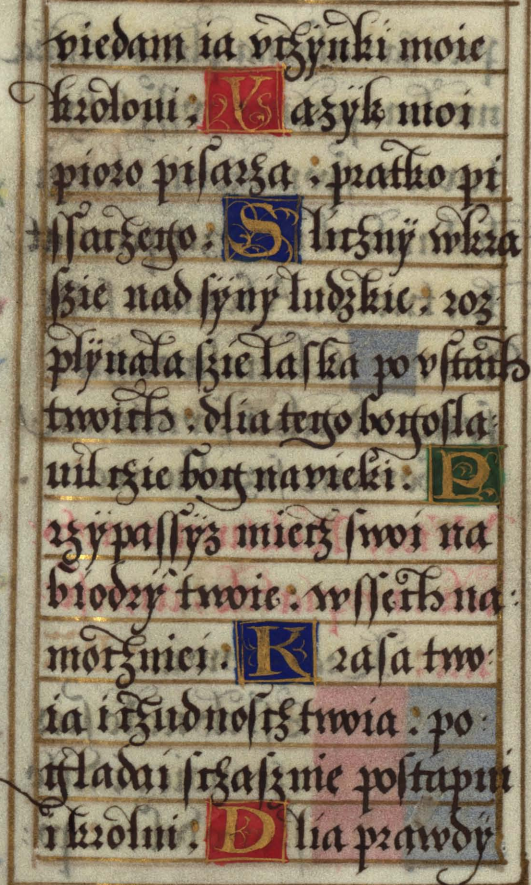 viedam ia vczÿnki moie
krolowi : Y azÿk moi
pioro pisarza . pratko pi
ssaczego : S licznÿ wkra
szie nad sÿnÿ ludzkie . roz
plÿnała szie łaska po vstach
twoich : dlia tego bogosla
uil czie bog na vieki : P
rzÿpassÿz miecz swoi na
biodrÿ twoie : wssech na
moczniei : K rasa two
ia i czudnoscz twoia : po
gladai sczasznie postapui
i krolui : D lia prawdÿ